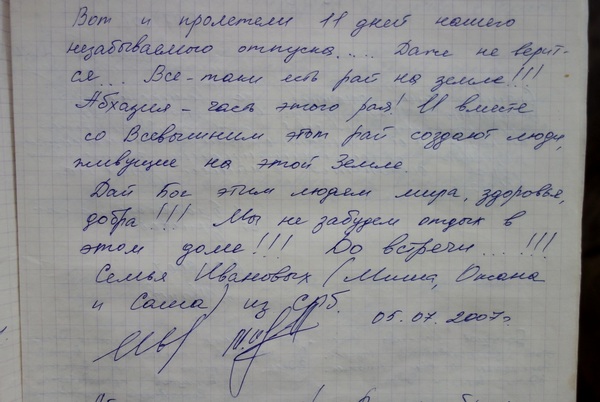 Вот и пролетели 11 дней нашего
незабываемого отпуска.... Даже не верит-
ся... Все-таки есть рай на земле!!!
Абхазия - часть этого рая! И вместе
со Всевышним этот рай создают люди,
живущие на этой Земле.
Дай Бог этим людям мира, здоровья,
добра!!! Мы не забудем отдых в
этом доме!!! До встречи...!!!
Семья Ивановых (Миша, Оксана
и Саша) из СПб.
05.07.2007г.